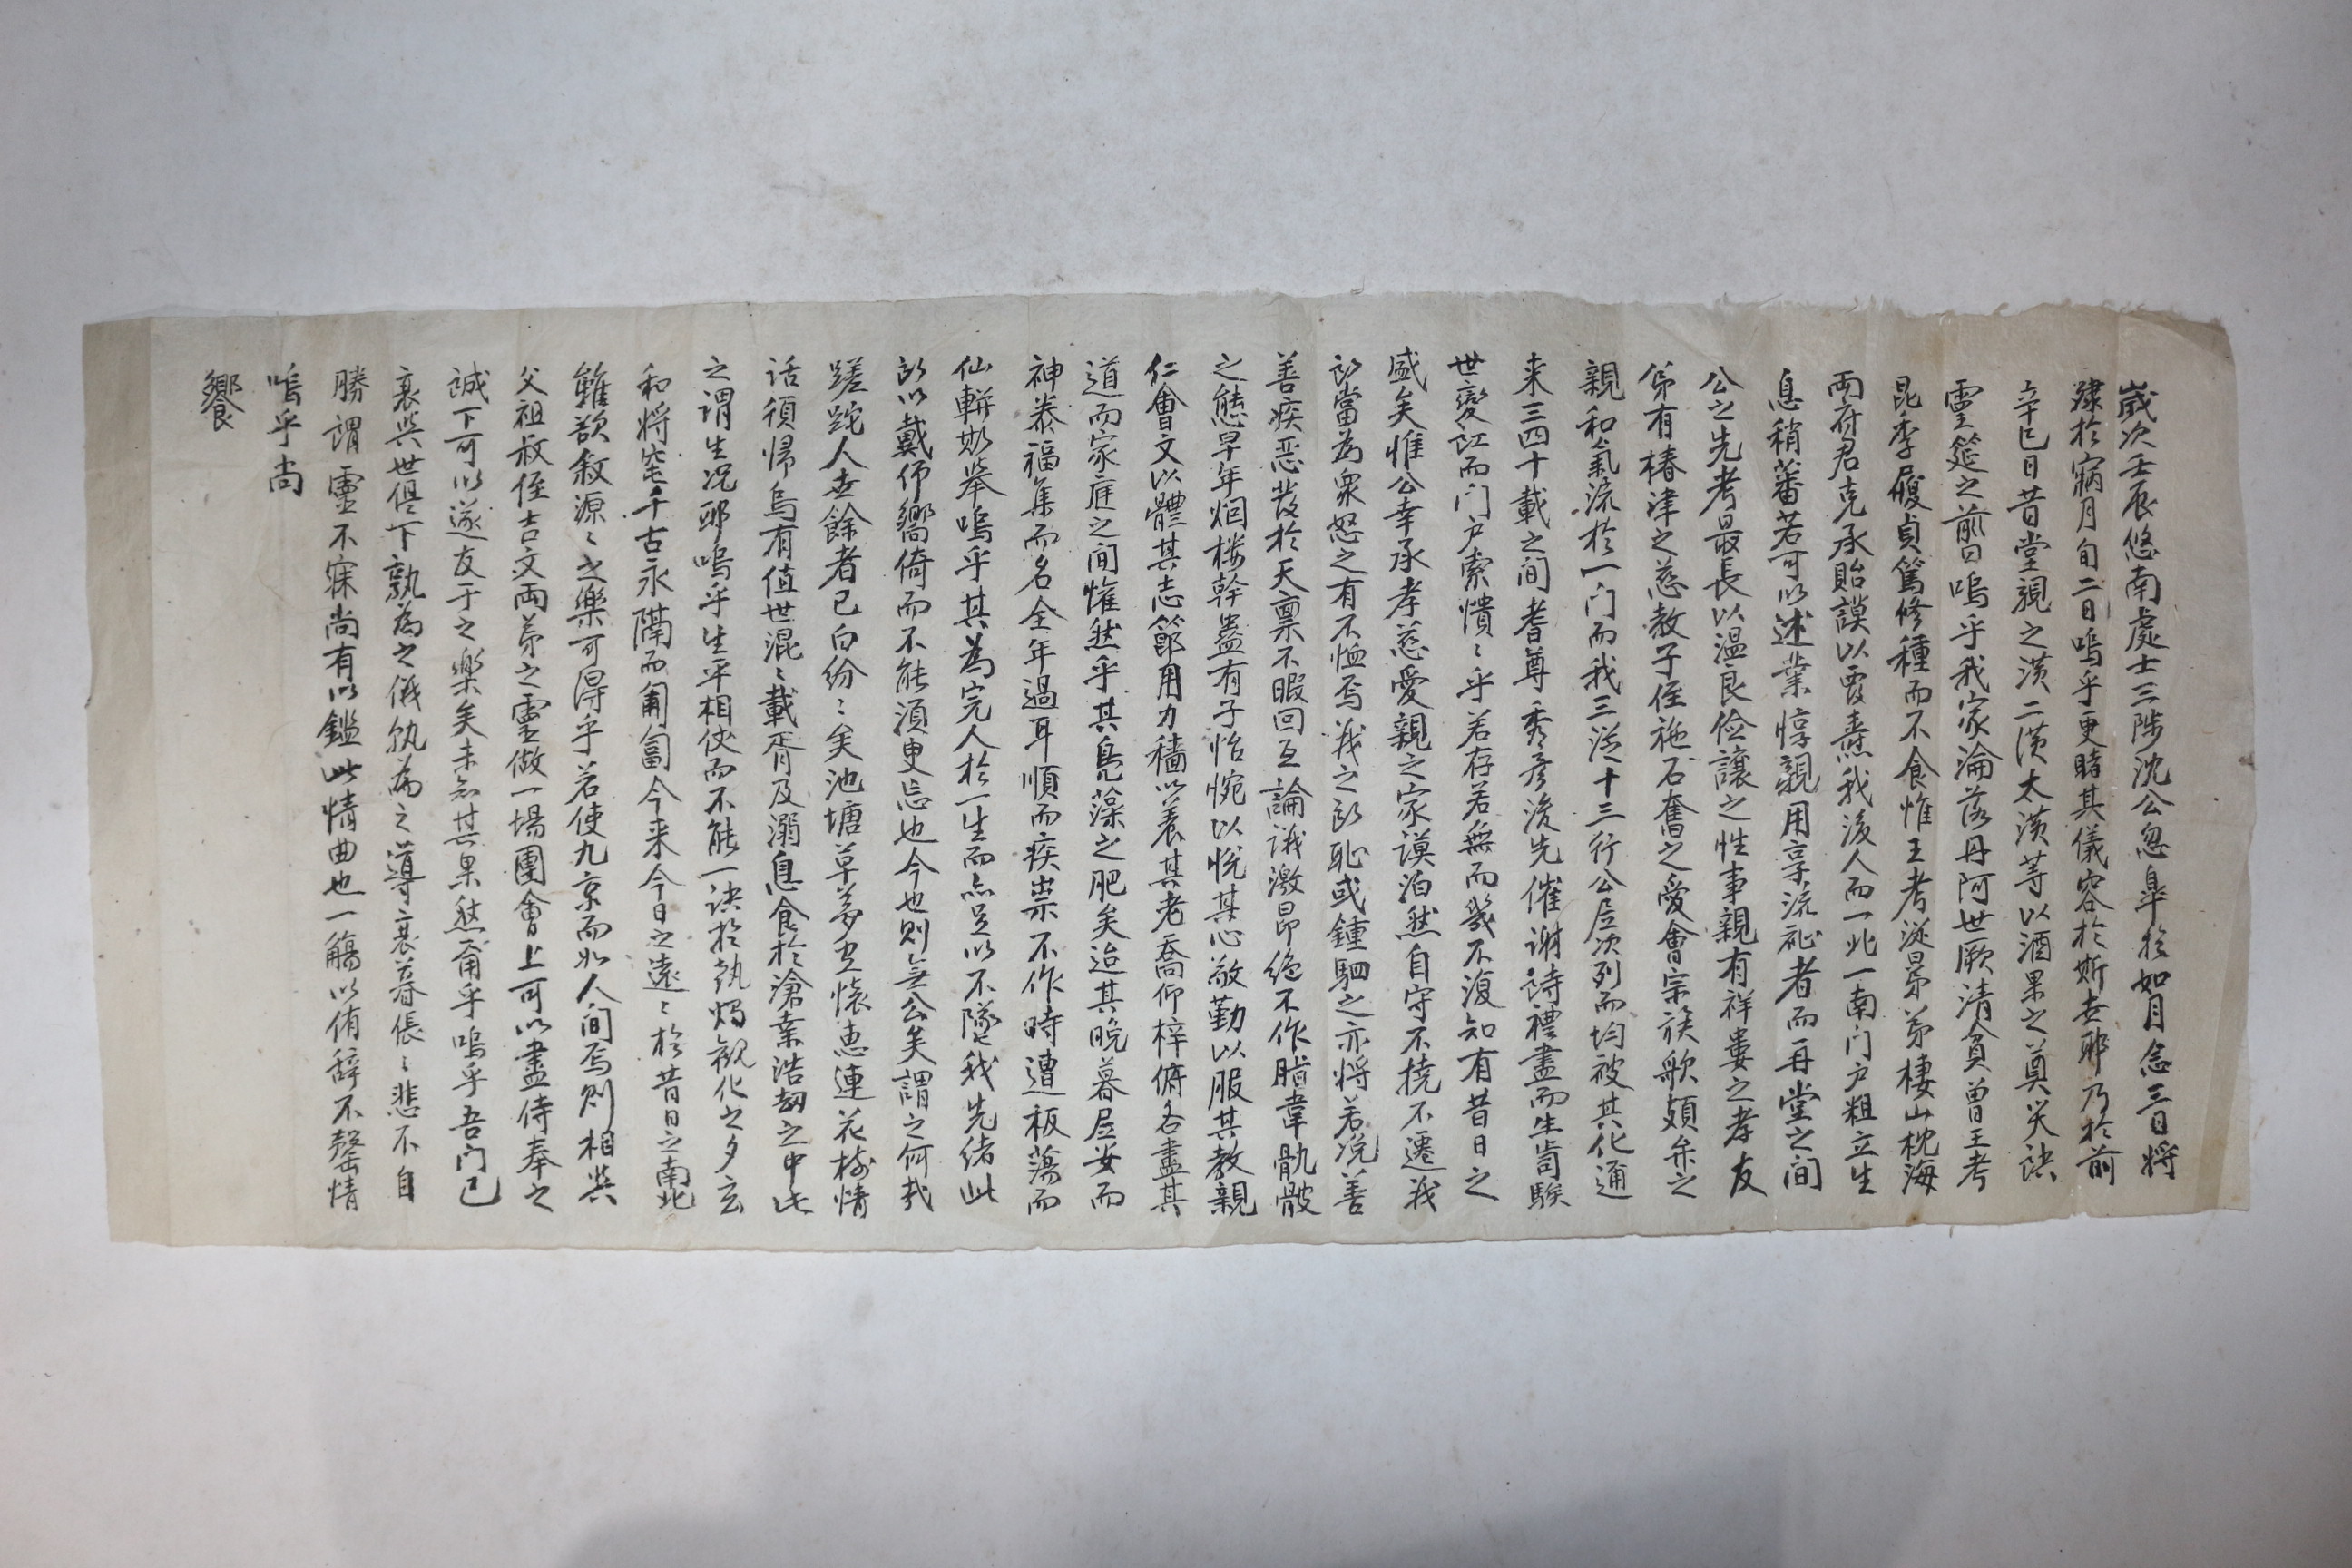 歲次壬辰悠南處士三陟沈公忽皐於如月念三日將
肂於窩月旬二日嗚乎更睹其儀容於斯世耶乃於前
辛巳日昔堂親之演二演太演等以酒果之奠哭訣
靈筵之前曰嗚乎我家淪落丹阿世厥清貧曾王考
昆季履貞篤修種而不食惟王考逆㫒弟棲山枕海
兩府君克承貽謨以覃燾我後人而一北一南门户粗立生
息稍蕃若可以述業惇親用享流祉者而再堂之间
公之先考最長以溫良儉讓之性事親有祥婁之孝友
弟有椿津之慈教子侄施石奮之愛會宗族歌頍弁之
親和氣流於一门而我三從十三行公居次列而均被其化通
来三四十載之间耆尊秀彦後先催謝詩禮盡而生歯駭
世變訌而门户索憒〻乎若存若無而幾不復知有昔日之
盛矣惟公幸承孝慈愛親之家謨泊然自守不撓不遷我
所當為衆怒之有不恤焉我之所恥或鍾駟之亦將若浼善
善疾恶發於天禀不暇回互論議激昂絶不作脂韋骫骳
之態早年烟楼幹蠱有子怡惋以悅其心敬勤以服其教親
仁會文以軆其志節用力穡以養其老喬仰梓俯各盡其
道而家庭之间懽然乎其鳧藻之肥矣迨其晩暮居安而
神泰福集而名全年過耳順而疾祟不作時遭板蕩而
仙軿欻举嗚乎其為完人於一生而亦足以不墜我先緒此
所以戴仰嚮倚而不能須臾忘也今也則無公矣謂之何哉
蹉跎人世餘者已白紛〻矣池塘草夢空懷惠連花樹情
话須帰烏有値世混〻載胥及溺息食於滄桒浩劫之中此
之谓生况耶嗚乎生平相依而不能一訣於執燭観化之夕玄
和将窀千古永隔而匍匐今来今日之遠〻於昔日之南北
雖欲敍源〻之樂可得乎若使九京而如人间焉則相與
父祖叔侄吉文兩弟之靈做一場團會上可以盡侍奉之
誠下可以遂友于之樂矣未知其果然甭乎嗚乎吾门已
衰與世俱下孰為之儀孰為之導衰暮倀〻悲不自
勝謂靈不寐尚有以鑑此情曲也一觴以侑辞不罄情
嗚乎尚
饗